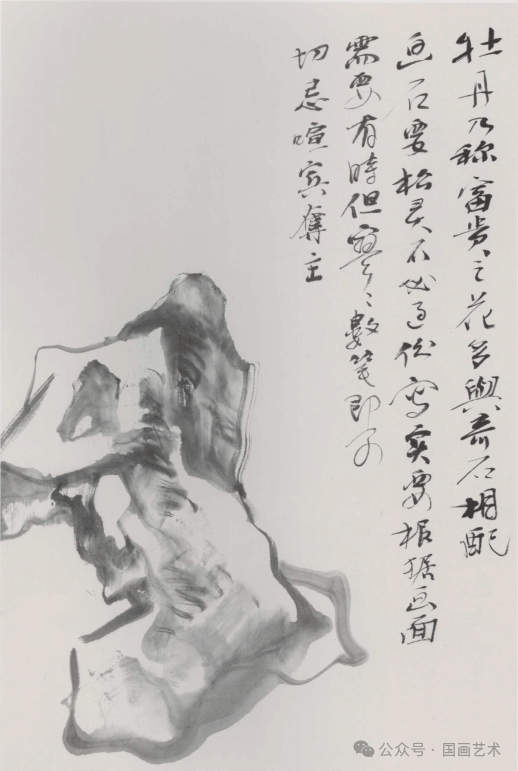 牡丹乃称富贵之花多与奇石相配
画石要松灵不必过份写实要根据画面
需要有时但寥寥数笔即可
切忌喧宾夺主
公众号·国画艺术